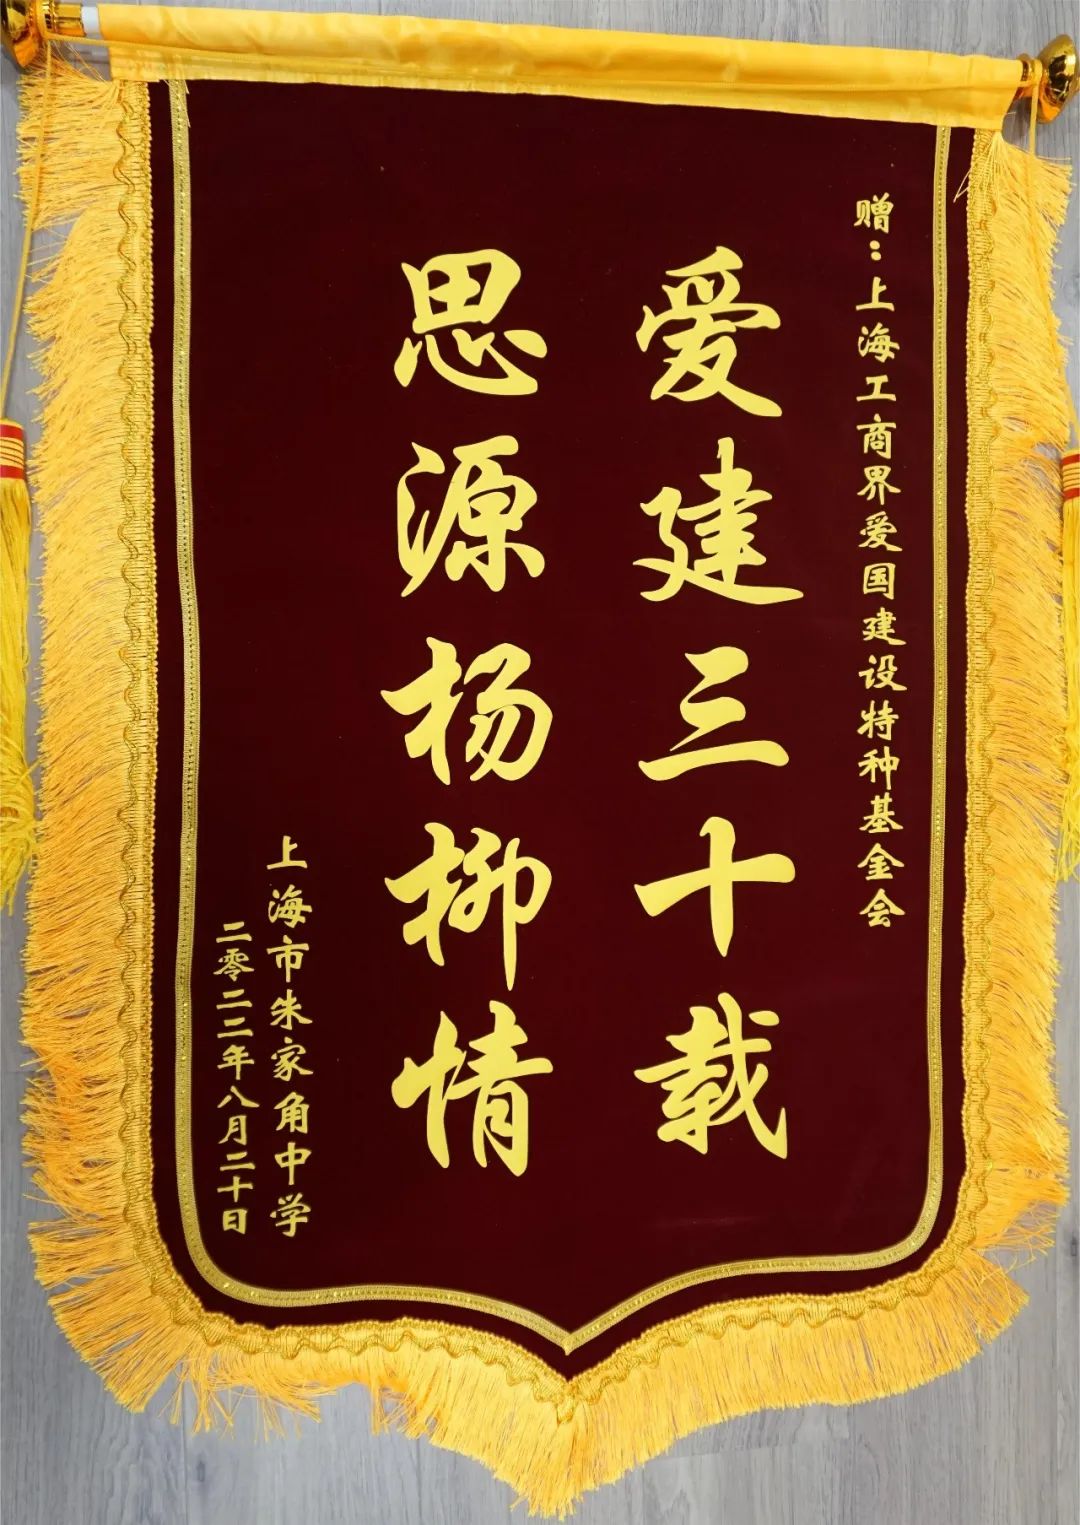 赠：上海工商界爱国建设特种基金会
爱建三十载
思源杨柳情
上海市朱家角中学
二零二二年八月二十日